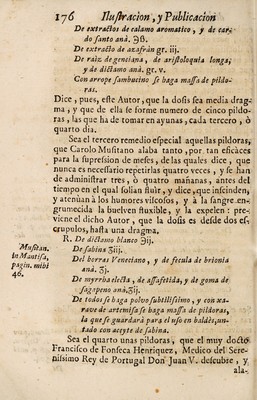 176 Ilustracion, y Publicacion
De extractos de calamo aromatico, y de car-
do santo aná. ℈ß.
De extracto de azafràn gr. iij.
De raìz de genciana, de aristoloquia longa,
y de dictamo aná, gr. v.
Con arrope sambucino se haga massa de pildo-
ras.
Dice, pues, este Autor, que la dosis sea media drag-
ma, y que de ella se forme numero de cinco pildo-
ras, las que ha de tomar en ayunas, cada tercero, ò
quarto dia.
Sea el tercero remedio especial aquellas pildoras,
que Carolo Musitano alaba tanto, por tan eficaces
para la supression de meses, de las quales dice, que
nunca es necessario repetirlas quatro veces, y se han
de administrar tres, ò quatro mañanas, antes del
tiempo en el qual solìan fluìr, y dice, que inscinden,
y atenùan à los humores viscosos, y à la sangre en-
grumecida la buelven fluxible, y la expelen: pre-
viene el dicho Autor, que la dosis es desde dos es-
crupulos, hasta una dragma.
R. De dictamo blanco ℈ij.
Musitan. De sabina ʒiij.
in Mantisa, Del borràs Veneciano, y de fecula de brionia
pagin. mihi aná. ʒj.
46. De myrrha electa, de assafetida, y de goma de
sagapeno aná. ʒij.
De todo se haga polvo subtilissimo, y con xa-
rave de artemisa se haga massa de pildoras,
la que se guardarà para el uso en baldès, un-
tado con aceyte de sabina.
Sea el quarto unas pildoras, que el muy docto
Francisco de Fonseca Henriquez, Medico del Sere-
nissimo Rey de Portugal Don Juan V. descubre, y
ala-